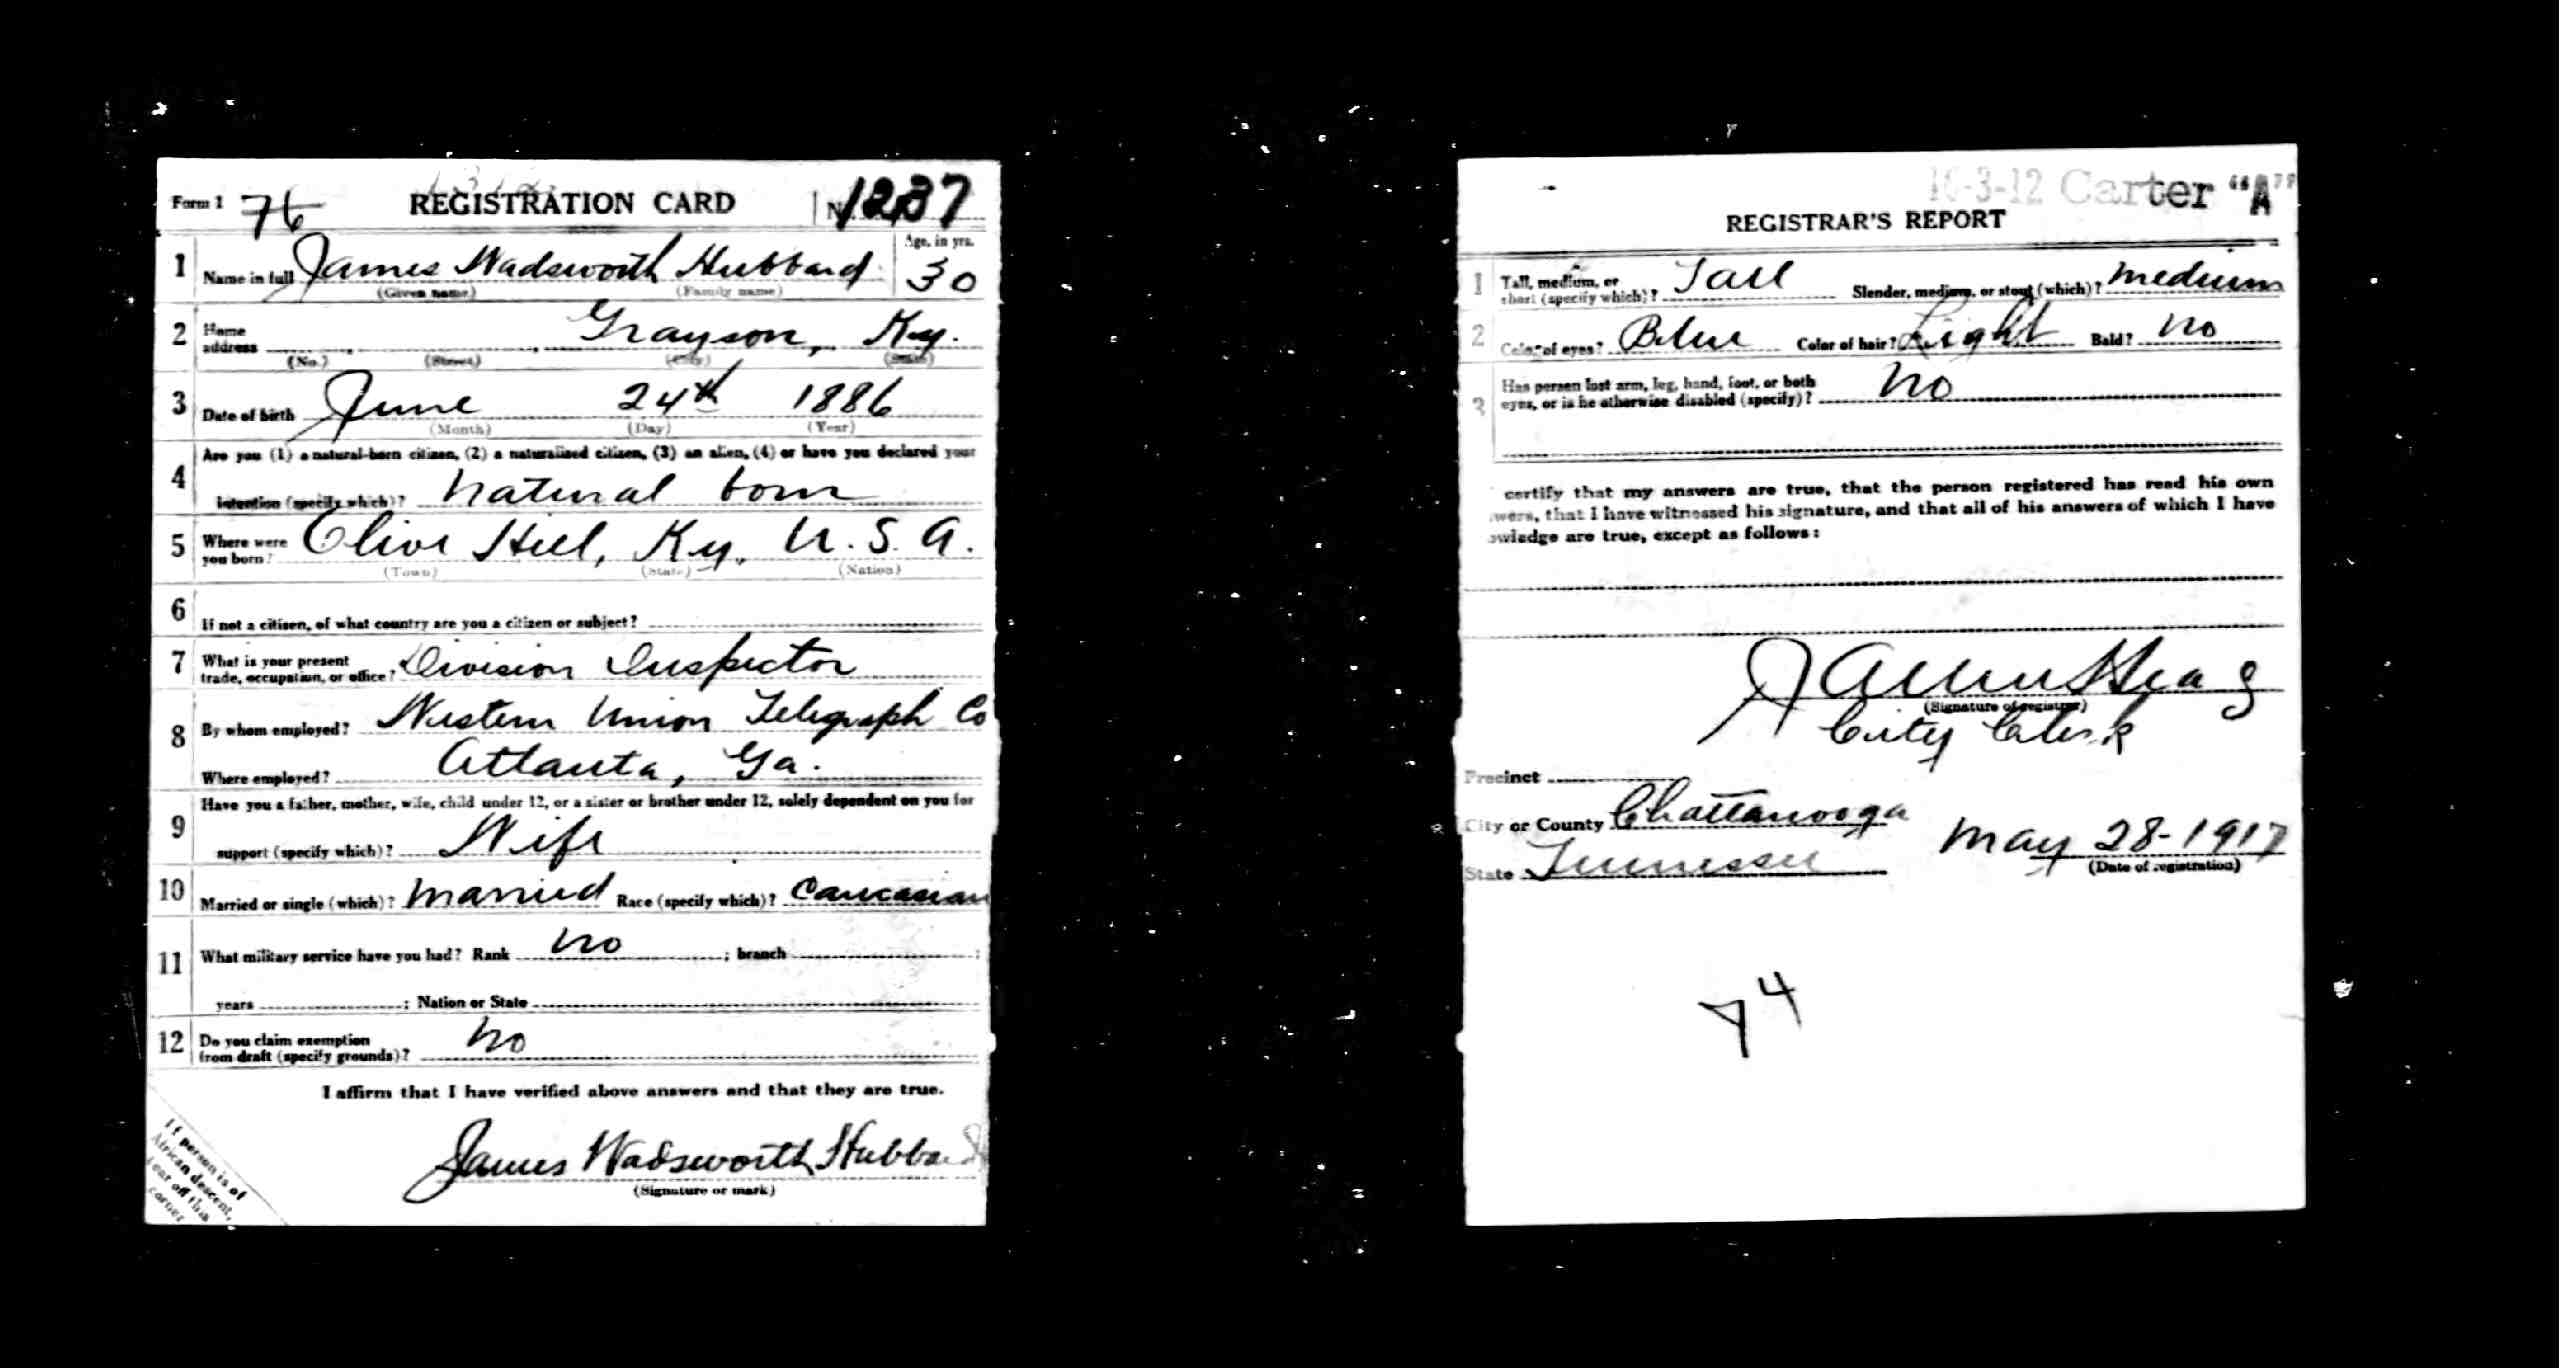 Form 1 76 REGISTRATION CARD No. 1237
1 Name in full James Wadsworth Hubbard Age, in yrs. 30
(Given name) (Family name)
2 Home address Grayson, Ky.
(No.) (Street) (City) (State)
3 Date of birth June 24th 1886
(Month) (Day) (Year)
4 Are you (1) a natural-born citizen, (2) a naturalized citizen, (3) an alien, (4) or have you declared your
intention (specify which)? Natural born
5 Where were you born? Olive Hill, Ky, U.S.A.
(Town) (State) (Nation)
6 If not a citizen, of what country are you a citizen or subject?
7 What is your present trade, occupation, or office? Division Inspector
8 By whom employed? Western Union Telegraph Co
Where employed? Atlanta, Ga.
9 Have you a father, mother, wife, child under 12, or a sister or brother under 12, solely dependent on you for
support (specify which)? Wife
10 Married or single (which)? Married Race (specify which)? Caucasian
11 What military service have you had? Rank No ; branch ;
years ; Nation or State
12 Do you claim exemption from draft (specify grounds)? No
I affirm that I have verified above answers and that they are true.
James Wadsworth Hubbard
(Signature or mark)
If person is of
African descent,
tear off this
corner
Carter "A"
REGISTRAR'S REPORT
1 Tall, medium, or short (specify which)? Tall Slender, medium, or stout (which)? Medium
2 Color of eyes? Blue Color of hair? Light Bald? No
3 Has person lost arm, leg, hand, foot, or both
eyes, or is he otherwise disabled (specify)? No
certify that my answers are true, that the person registered has read his own
wers, that I have witnessed his signature, and that all of his answers of which I have
owledge are true, except as follows:
(Signature of registrar)
City Clerk
Precinct
City or County Chattanooga
May 28-1917
State Tennessee
(Date of registration)
74